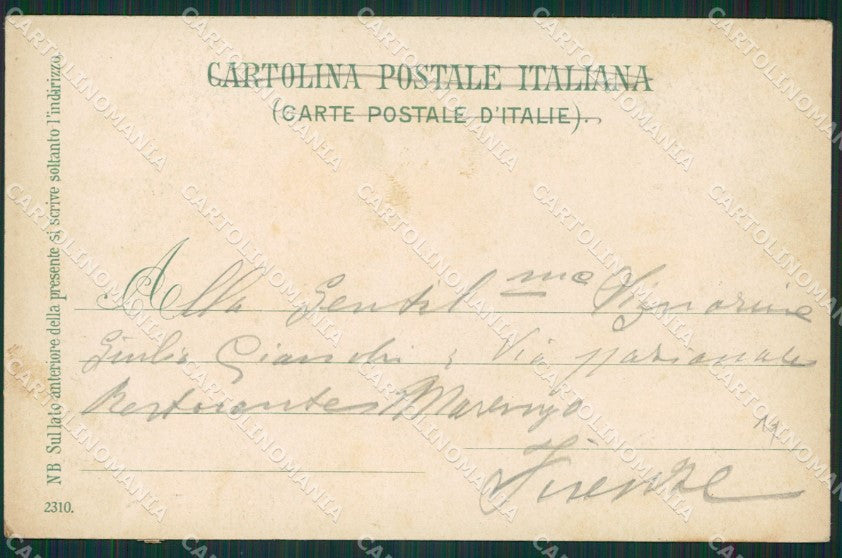 CARTOLINA POSTALE ITALIANA
(CARTE POSTALE D'ITALIE).
NB Sul lato anteriore della presente si scrive soltanto l'indirizzo.
Alla Gentilme Signorine
Via nazionale
Restorante Marengo
Firenze
2310.
CARTOLINOMANIA